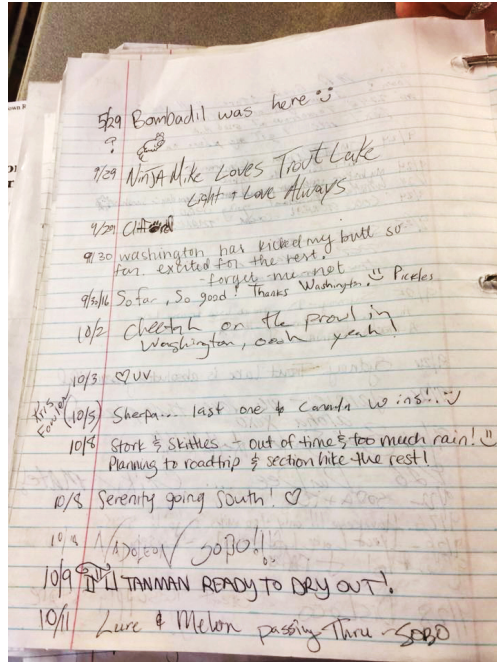 5/29 Bombadil was here
?
9/29 NINJA Mike Loves Trout Lake
Light + Love Always
9/29
9/30 washington has kicked my butt so
far. excited for the rest.
- forget me not
9/30/16 So far, So good! Thanks Washington. Pickles
10/2 Cheetah on the prowl in
Washington, oooh yeah!
10/3 ♡ UV
Kris
Fowler (10/5) Sherpa... last one to Canada wins!!
10/8 Stork & Skittles - out of time & too much rain!
Planning to roadtrip & section hike the rest!
10/8 Serenity going South! ♡
NAPOLEON SOBO!!
10/9 TANMAN READY TO DRY OUT!
10/11 Lure & Melon passing Thru - SOBO